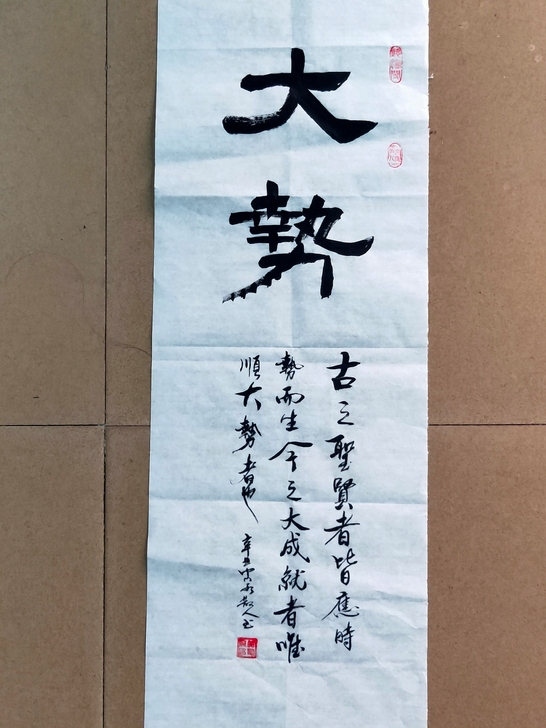 大勢
古之聖賢者皆應時
勢而生今之大成就者唯
順大勢者也
辛丑